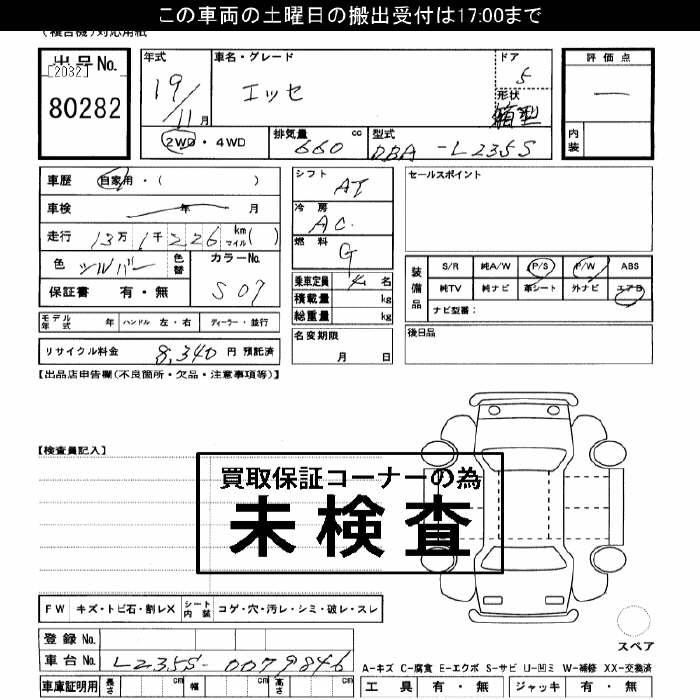 この車両の土曜日の搬出受付は17:00まで
(複合機)対応用紙
出品No.
[2032]
80282
年式
19/11月
車名・グレード
エッセ
ドア
5
形状
箱型
評価点
一
内装
2WD・4WD
排気量
660 cc
型式
DBA-L235S
車歴 自家用・( )
車検 年 月
走行 13万1千226 km マイル( )
色 シルバー
色替
カラーNo.
S07
保証書 有・無
シフト
AT
冷房
AC
燃料
G
乗車定員 4名
積載量 kg
総重量 kg
セールスポイント
装備品
S/R 純A/W P/S P/W ABS
純TV 純ナビ 革シート 外ナビ エアB
ナビ型番:
モデル年式 年 ハンドル 左・右 ディーラー・並行
名変期限
月 日
後日品
リサイクル料金 8,340円 預託済
【出品店申告欄(不良箇所・欠品・注意事項等)】
【検査員記入】
買取保証コーナーの為
未検査
FW キズ・トビ石・割レX シート内装 コゲ・穴・汚レ・シミ・破レ・スレ
スペア
登録No.
車台No. L235S-0079846
A-キズ C-腐食 E-エクボ S-サビ U-凹ミ W-補修 XX-交換済
車庫証明用 長さ cm 幅 cm 高さ cm
工具 有・無 ジャッキ 有・無